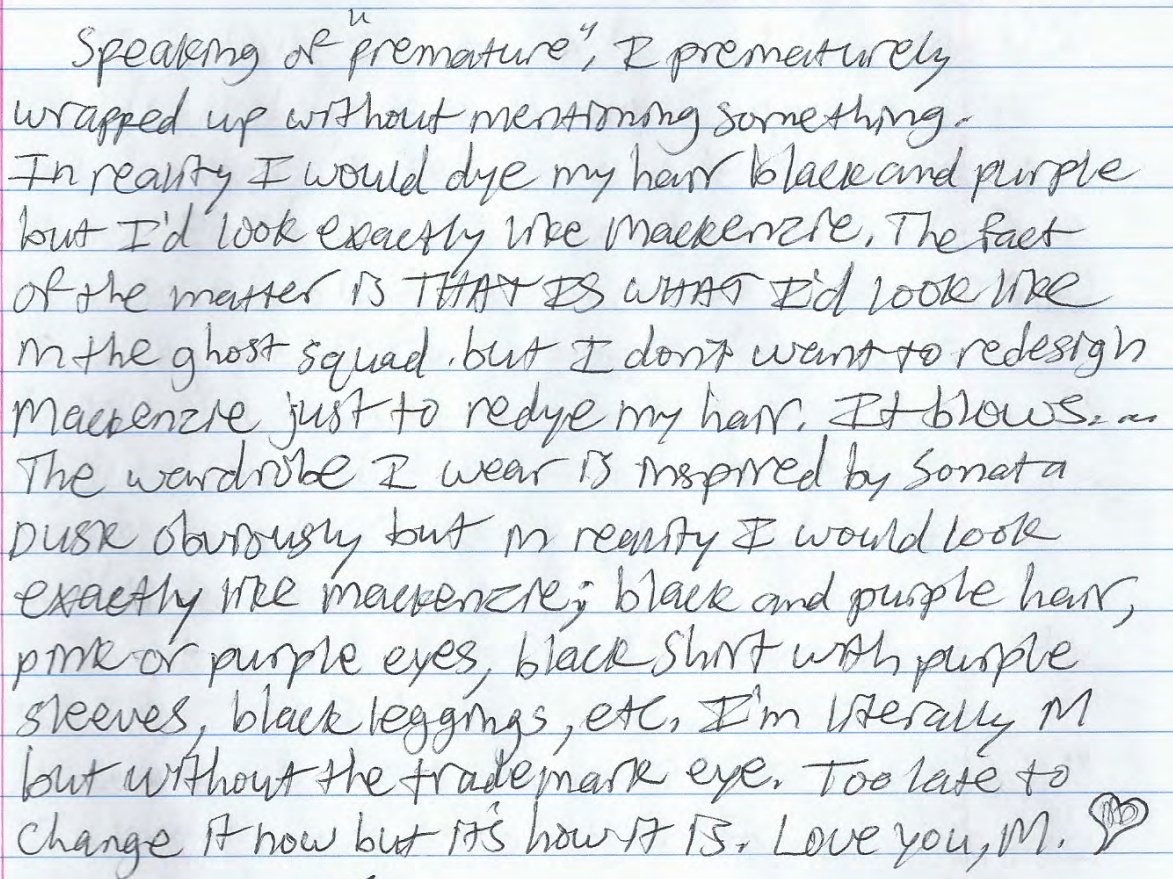 Speaking of "premature", I prematurely
wrapped up without mentioning something.
In reality I would dye my hair black and purple
but I'd look exactly like Mackenzie. The fact
of the matter is THAT IS WHAT I'd look like
in the ghost squad. but I don't want to redesign
Mackenzie just to redye my hair. It blows...
The wardrobe I wear is inspired by Sonata
Dusk obviously but in reality I would look
exactly like mackenzie; black and purple hair,
pink or purple eyes, black shirt with purple
sleeves, black leggings, etc. I'm literally M
but without the trademark eye. Too late to
change it now but it's how it is. Love you, M.